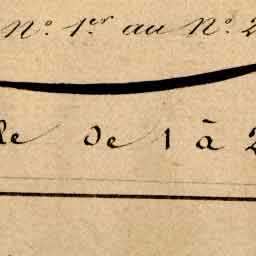 N.º 1.er au N.º 2
le de 1 à 2